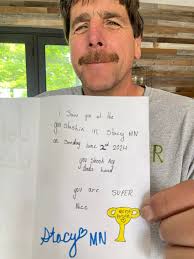 I Saw you at the
gas Stashin in Stacy MN
on Sunday June 2nd 2024
you Shook my
dads hand
you are SUPER
Nice
Stacy MN